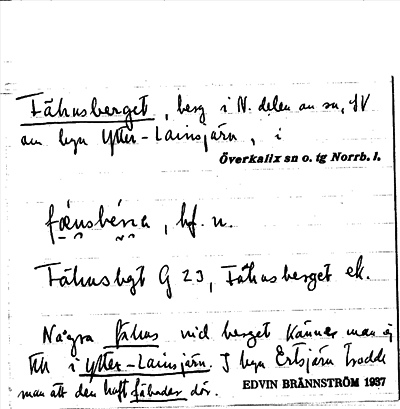 Fähusberget, berg i N. delen av sn, SV
om byn Ytter-Lainsjärn, i
Överkalix sn o. tg Norrb. l.
, bf. n.
Fähusbgt G 23, Fähusberget ek.
Några fähus vid berget känner man ej
till i Ytter-Lainsjärn. I byn Ertsjärn trodde
man att den haft fäbodar där. EDVIN BRÄNNSTRÖM 1937